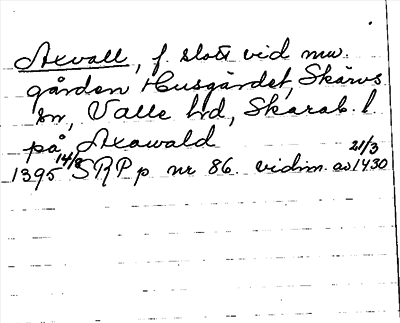 Axvall, f. slott vid nuv.
gården Husgärdet, Skärvs
sn, Valle hd, Skarab. l
på Axawald
1395 14/8 SRP p nr 86. vidim. av 21/3 1430